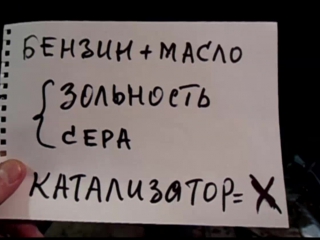 БЕНЗИН + МАСЛО
{ ЗОЛЬНОСТЬ
СЕРА
КАТАЛИЗАТОР = X